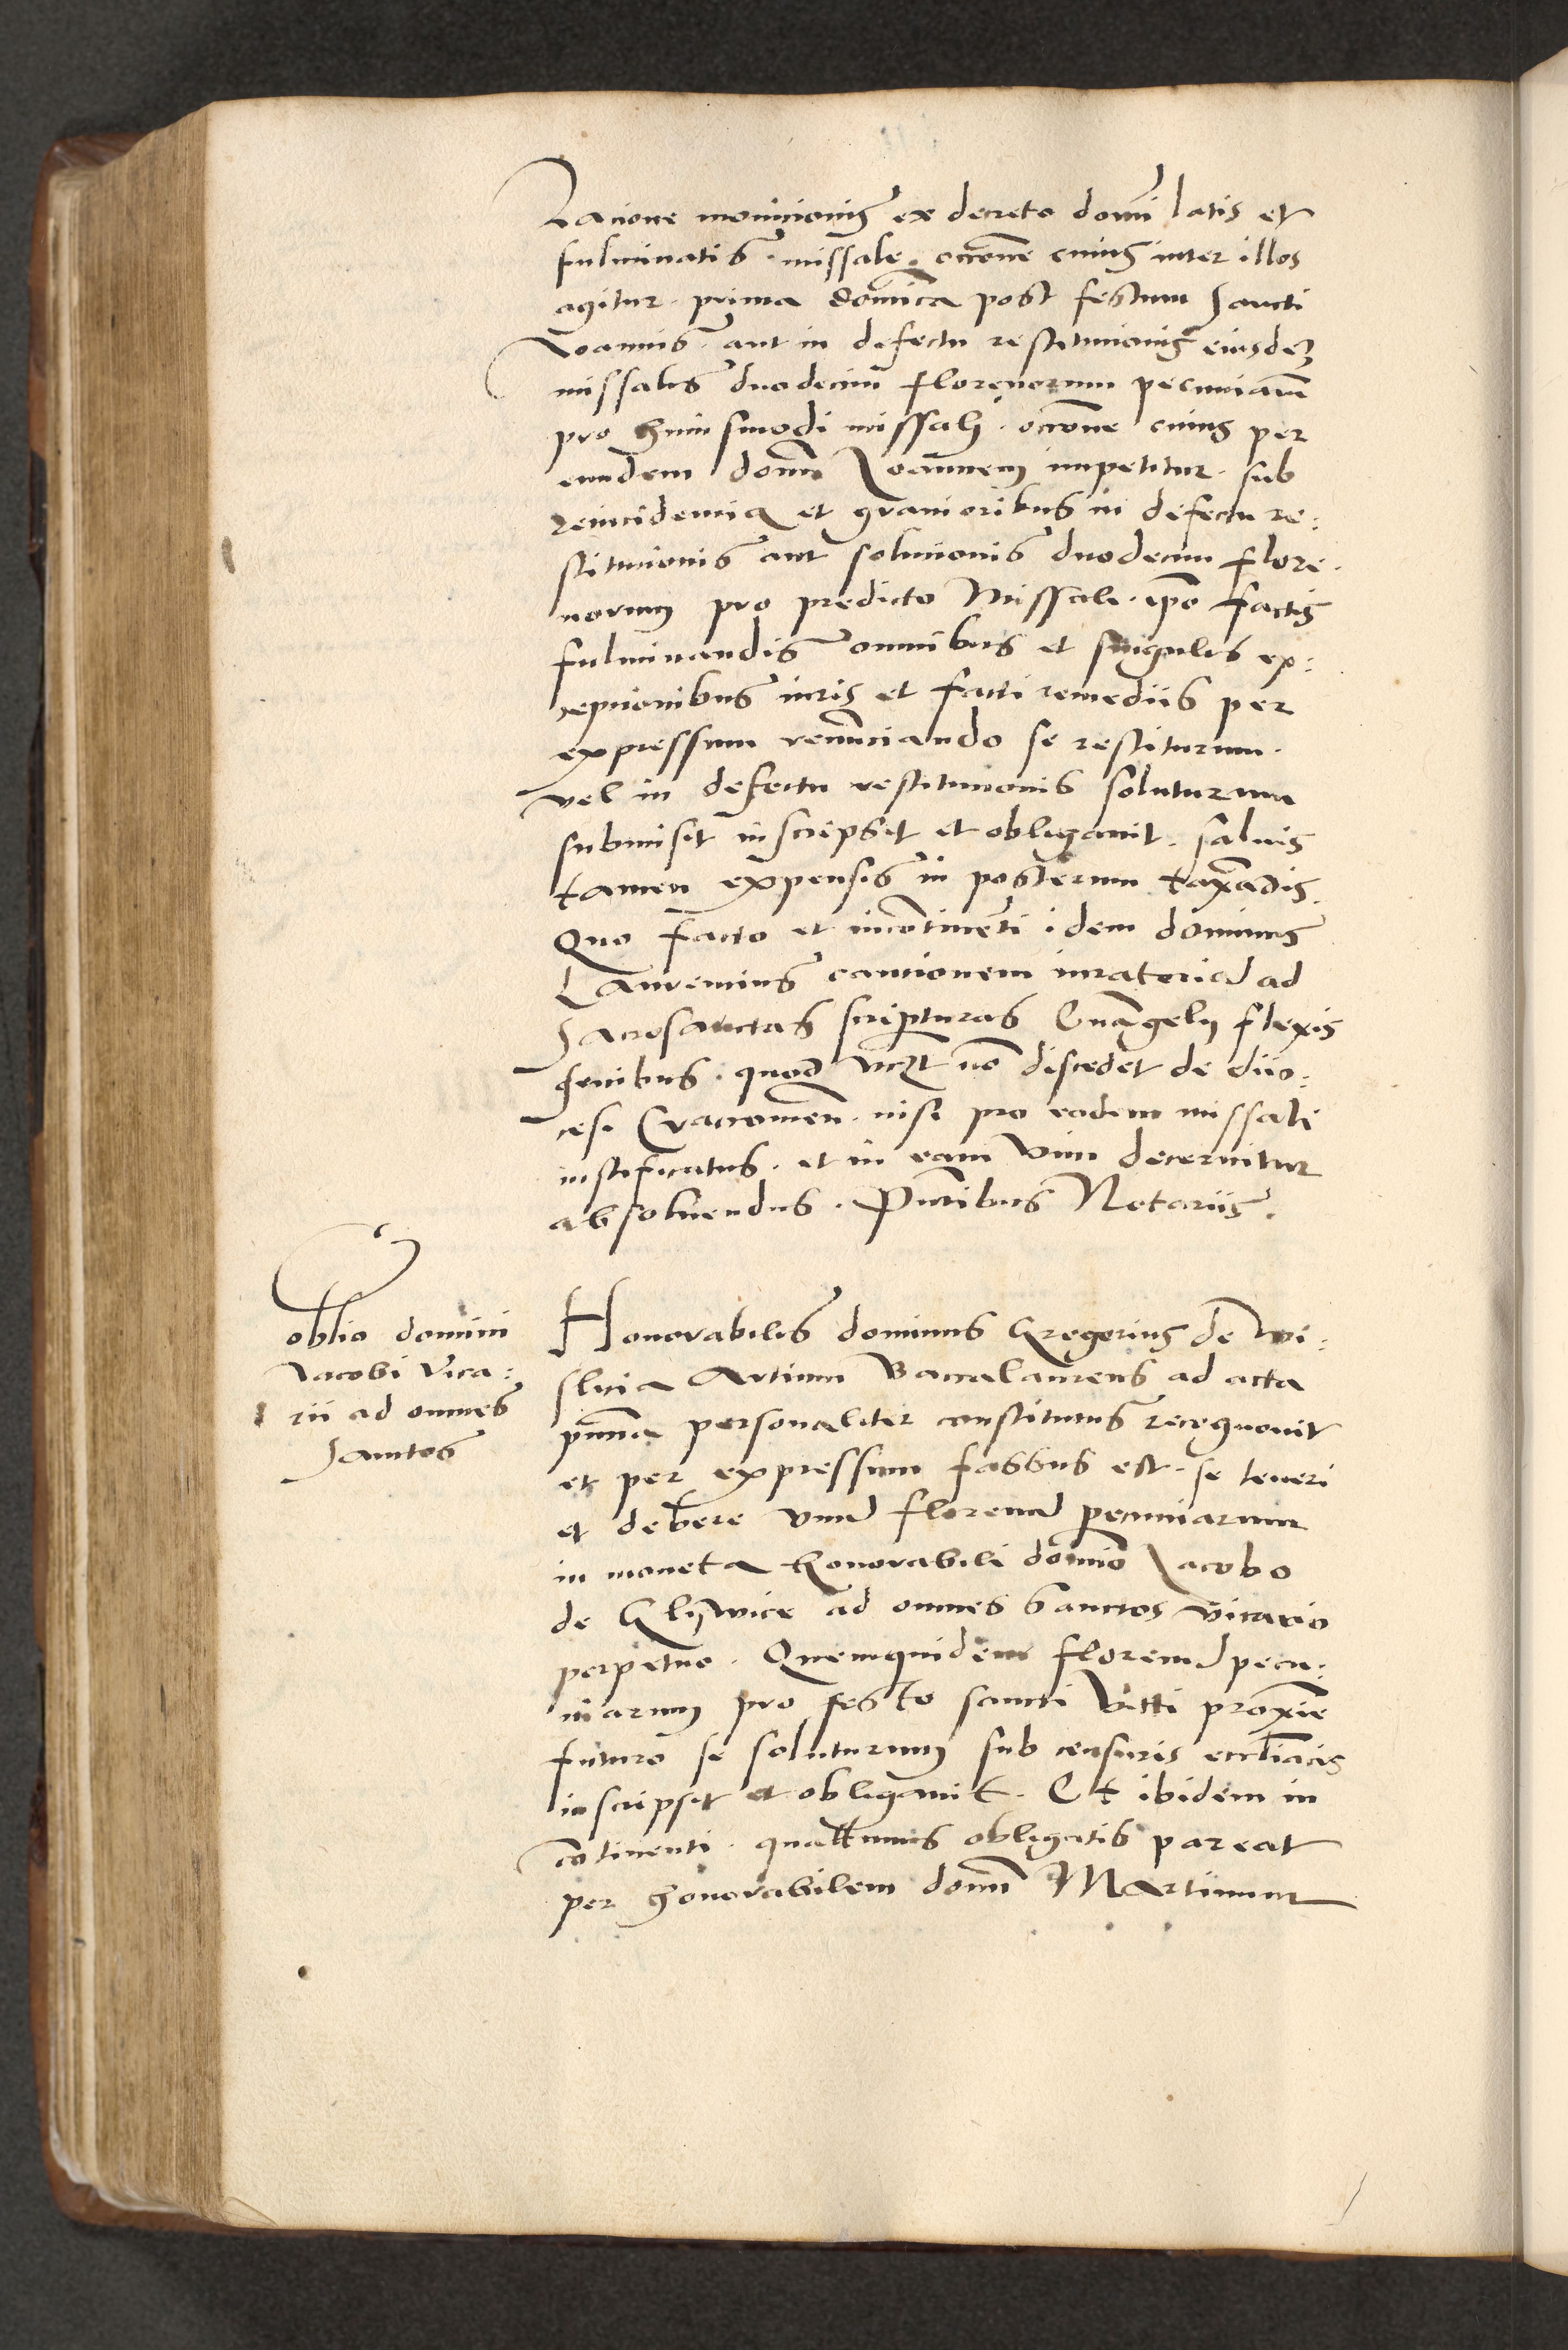 Racione monicionis ex decreto domini latis et
fulminatis . missale . occone cuius inter illos
agitur . prima dominica post festum Sancti
Joannis . aut in defectu restitucionis eiusdem
missalis duodecim florenorum pecuniarum
pro huiusmodi missali . occone cuius per
eundem domnum Joannem impetitur . sub
reincidencia et gravioribus in defectu re:
stitucionis aut solucionis duodecim flore.
norum pro predicto Missali . ipso factis
fulminandis omnibus et singulis ex:
cepcionibus iuris et facti remediis per
expressum renunciando se restiturum .
vel in defectu restitucionis soluturum
submisit inscripsit et obligavit . salvis
tamen expensis in posterum taxandis .
Quo facto et incontinenti idem dominus
Laurencius caucionem iuratoriam ad
Sacrosanctas scripturas Euangelij flexis
genibus . quod non discedet de dio:
cesi Cracovien . nisi pro eodem missali
iustificatus . et in eam vim decernitur
absolvendus . Pntibus Notariis .
oblio domini
Jacobi Vica:
rii ad omnes
Sanctos
Honorabilis dominus Gregorius de Wi:
slicia Artium Baccalaureus ad acta
pnncia personaliter constitutus recognovit
et per expressum fassus est . se teneri
et debere unum florenum pecuniarum
in moneta honorabili domino Jacobo
de Glywice ad omnes Sanctos vicario
perpetuo . Quemquidem florenum pecu:
niarum pro festo sancti Viti proxime
futuro se soluturum sub censuris eccliacis
inscripsit et obligavit . Et ibidem in
continenti . quattenus obligatis pareat
per honorabilem domnum Martinum